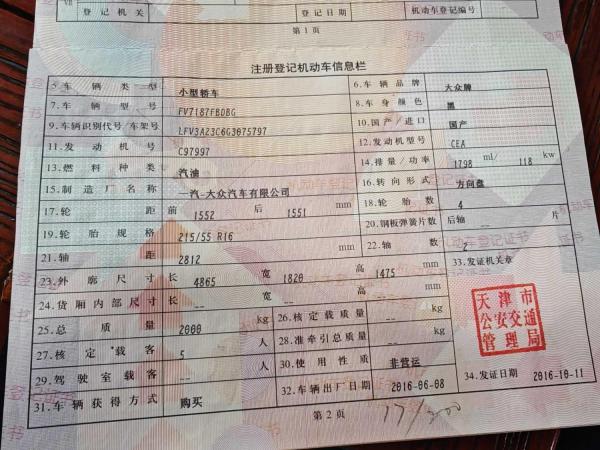 VII 登记机关 登记日期 机动车登记编号
第1页
注册登记机动车信息栏
5.车辆类型 小型轿车 6.车辆品牌 大众牌
7.车辆型号 FV7187FBDBG 8.车身颜色 黑
9.车辆识别代号/车架号 LFV3A23C6G3075797 10.国产/进口 国产
11.发动机号 C97997 12.发动机型号 CEA
13.燃料种类 汽油 14.排量/功率 1798 ml/ 118 kw
15.制造厂名称 一汽-大众汽车有限公司 16.转向形式 方向盘
17.轮距 前 1552 后 1551 mm 18.轮胎数 4
19.轮胎规格 215/55 R16 20.钢板弹簧片数 后轴 -- 片
21.轴距 2812 mm 22.轴数 2
23.外廓尺寸 长 4865 宽 1820 高 1475 mm 33.发证机关章
24.货厢内部尺寸 长 -- 宽 -- 高 -- mm
天津市
公安交通
管理局
25.总质量 2000 kg 26.核定载质量 -- kg
27.核定载客 5 人 28.准牵引总质量 -- kg
29.驾驶室载客 -- 人 30.使用性质 非营运
31.车辆获得方式 购买 32.车辆出厂日期 2016-06-08 34.发证日期 2016-10-11
第2页